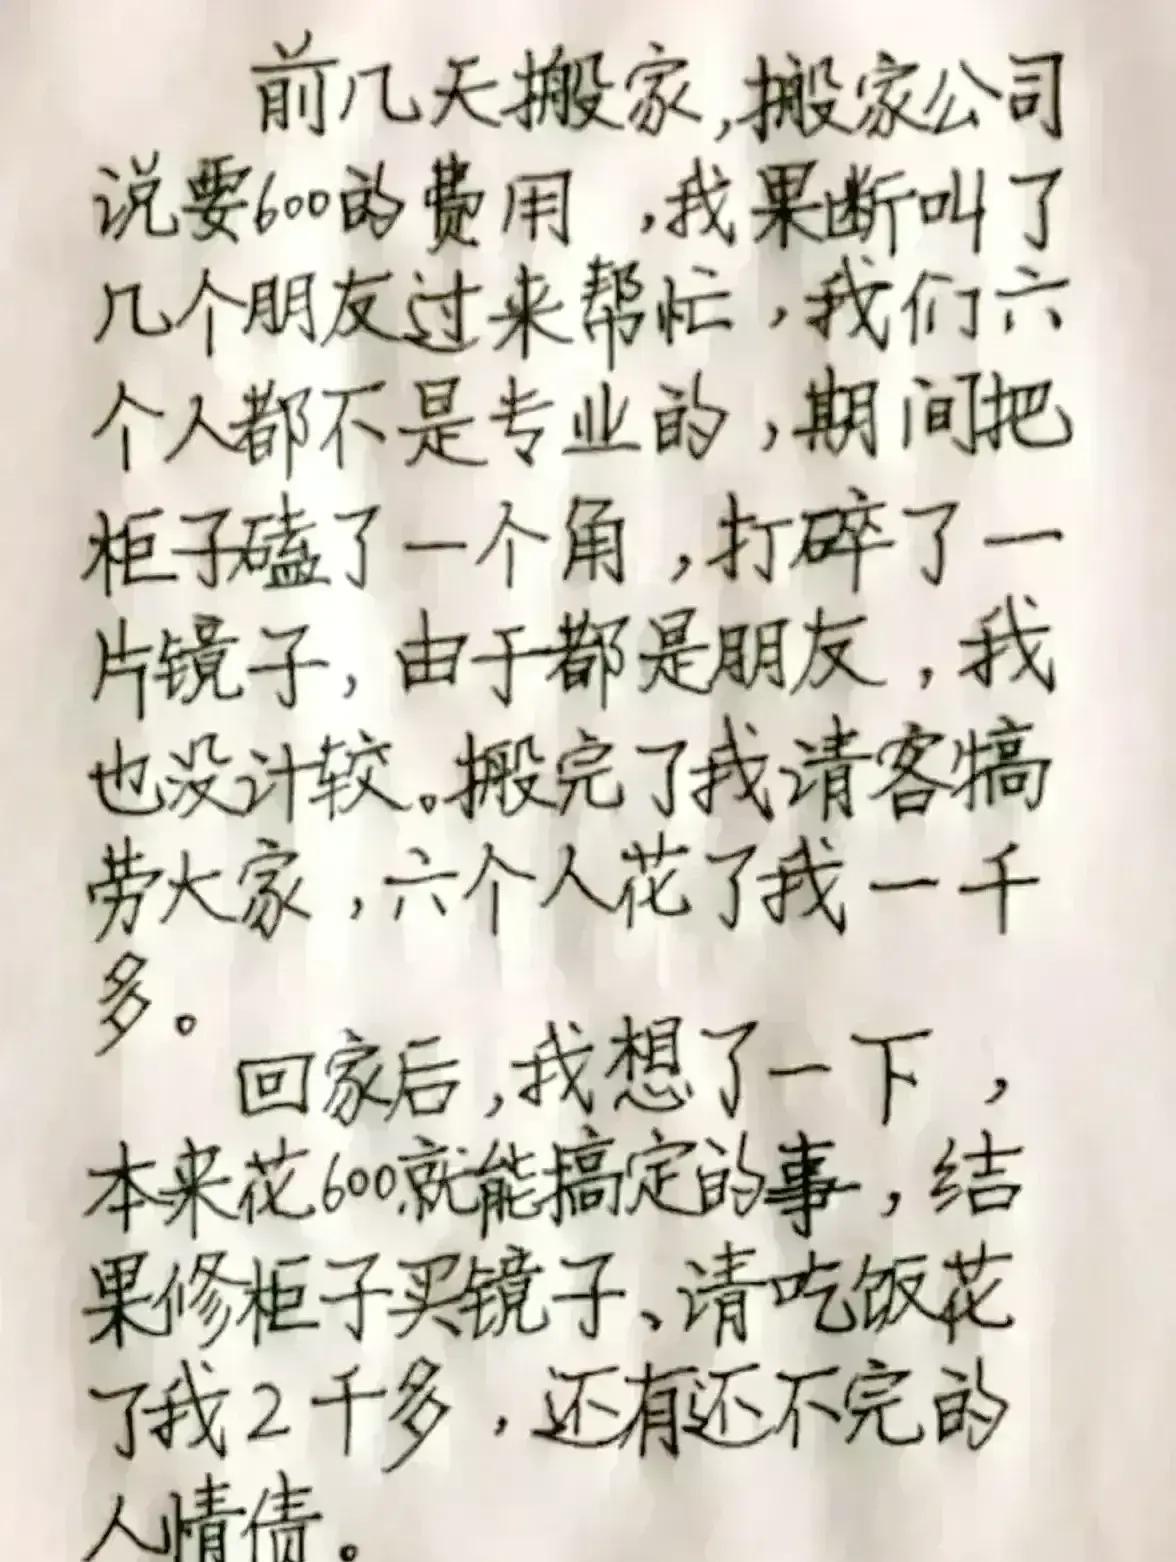 前几天搬家,搬家公司
说要600的费用,我果断叫了
几个朋友过来帮忙,我们六
个人都不是专业的,期间把
柜子磕了一个角,打碎了一
片镜子,由于都是朋友,我
也没计较。搬完了我请客犒
劳大家,六个人花了我一千
多。
回家后,我想了一下,
本来花600就能搞定的事,结
果修柜子买镜子、请吃饭花
了我2千多,还有还不完的
人情债。